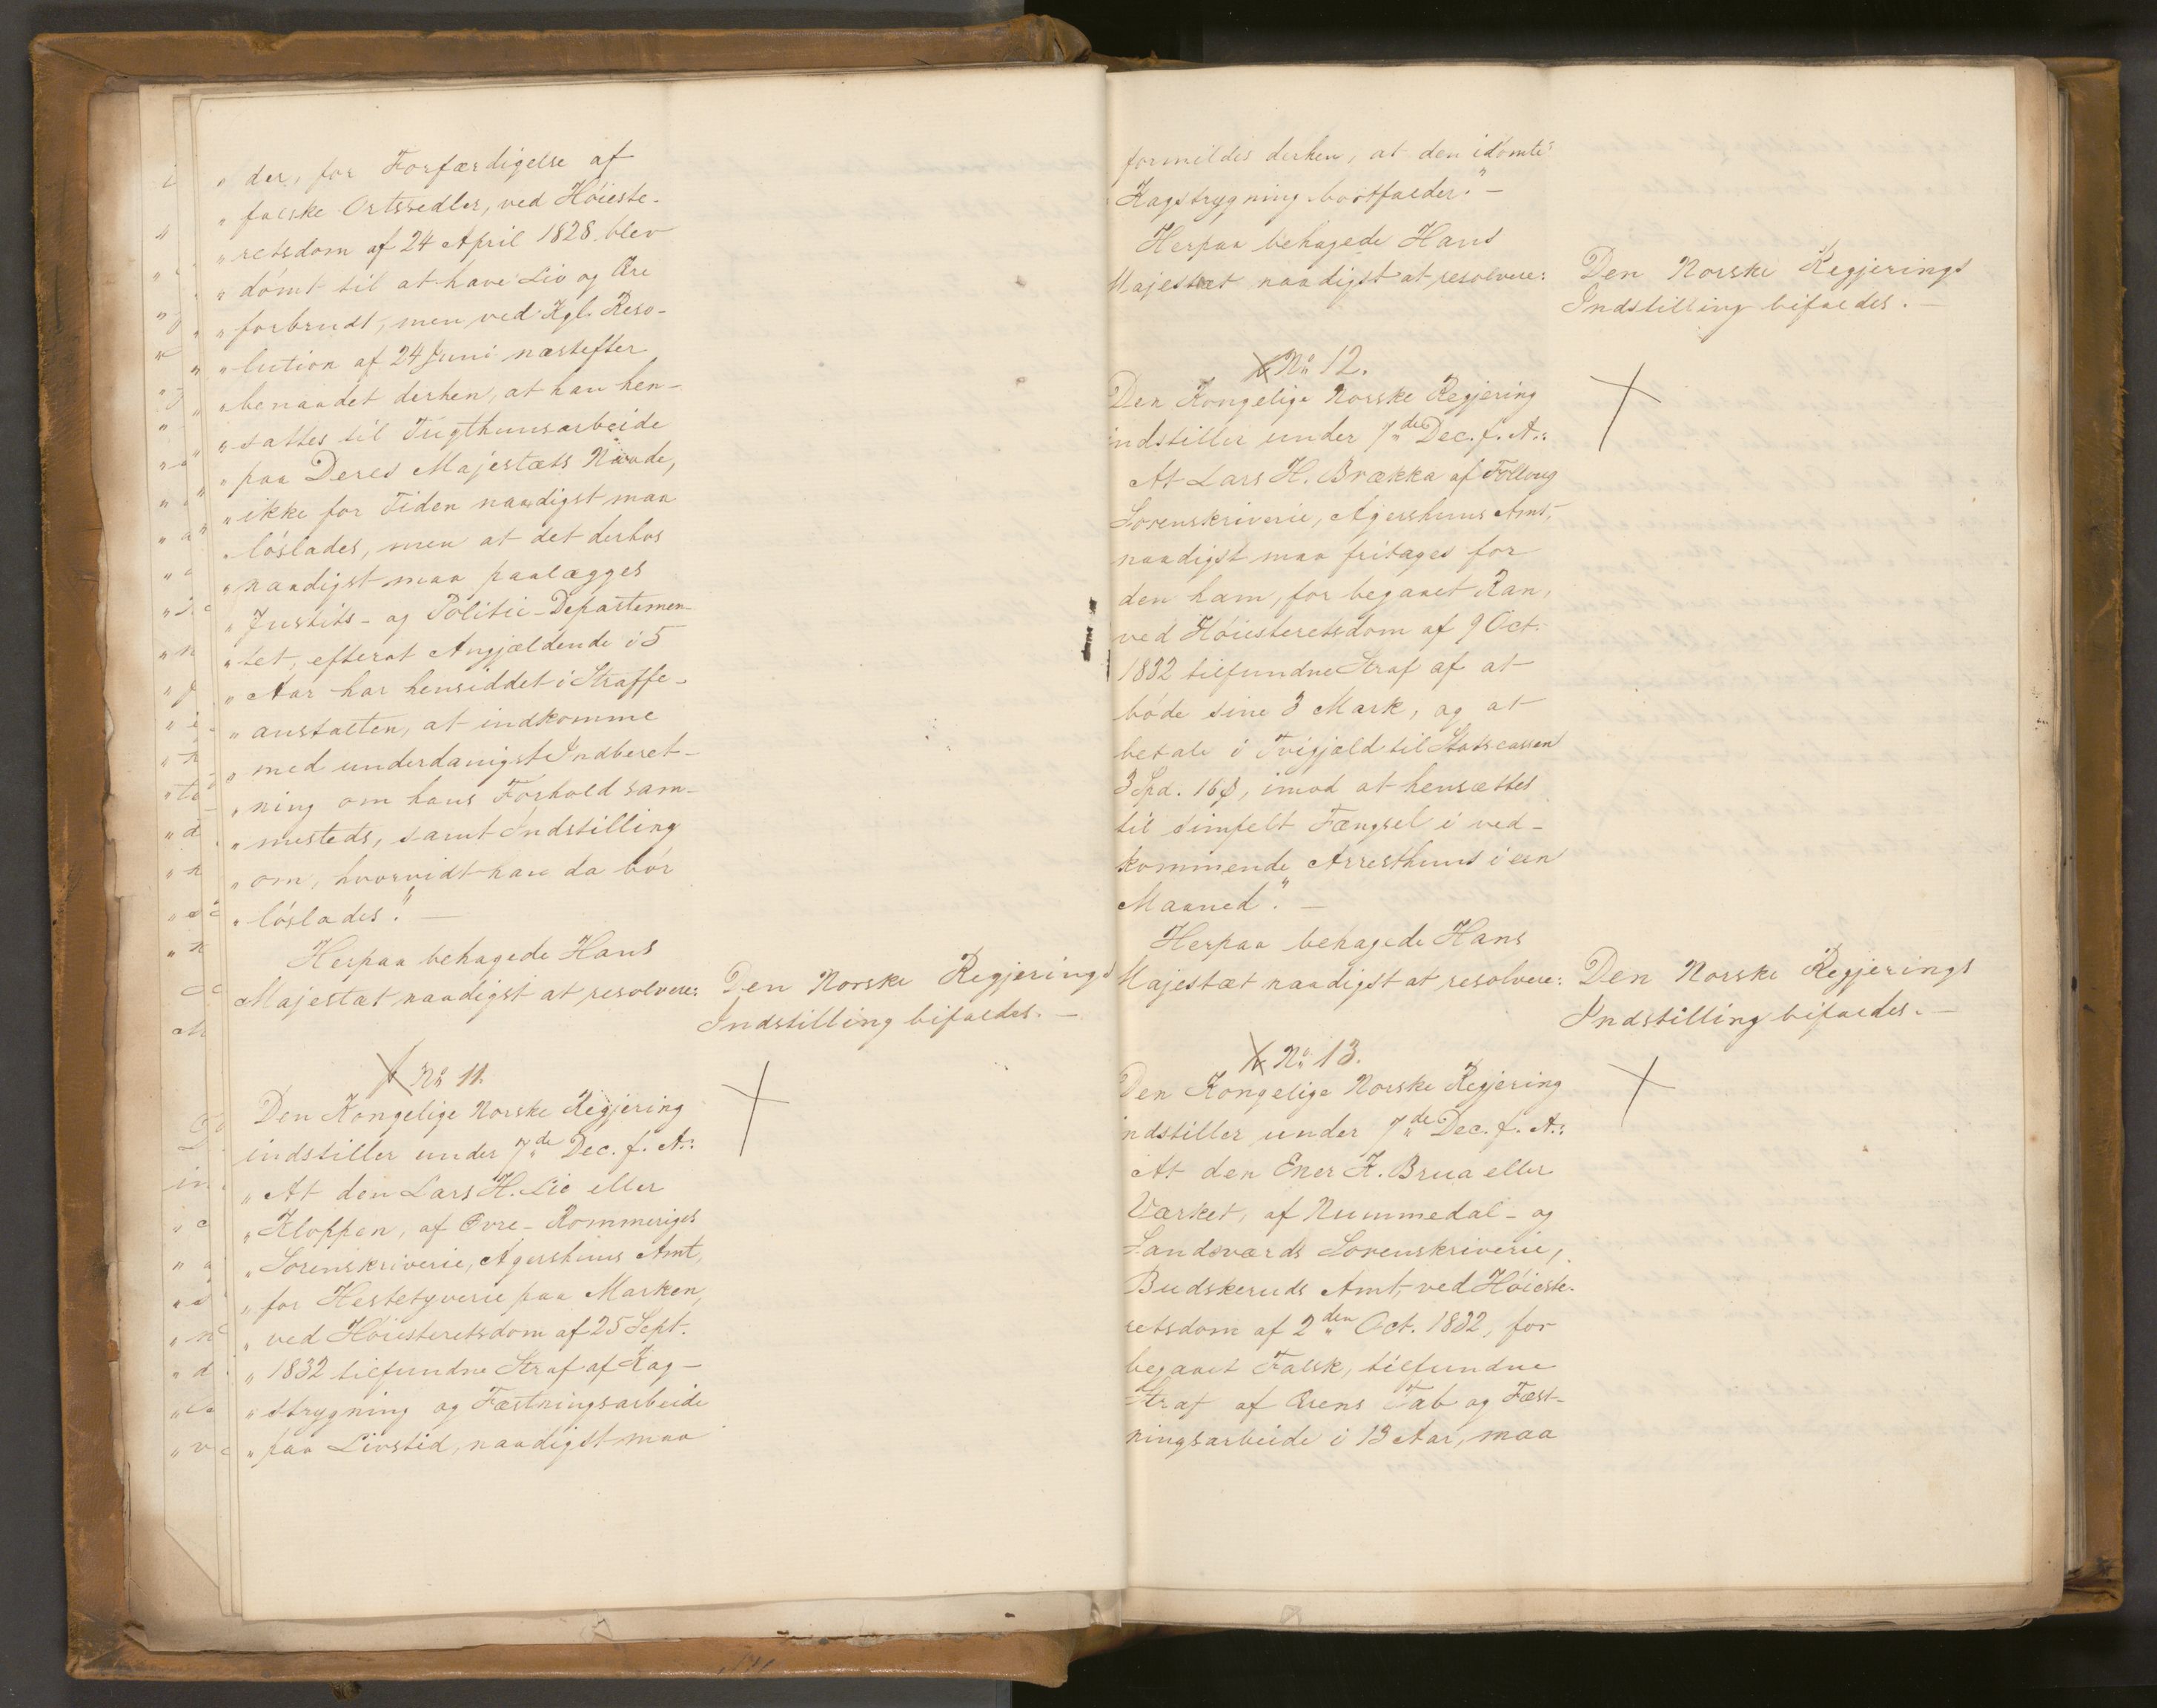 „ der, for Forfærdigelse af
„ falske Ortssedler, ved Höieste-
„ retsdom af 24 April 1828 blev
„ dömt til at have Liv og Ære
„ forbrudt, men ved Kgl. Reso-
„ lution af 24 Juni næstefter
„ benaadet derhen, at han hen-
„ sattes til Tugthuusarbeide
„ paa Deres Majestæts Naade,
„ ikke for Tiden naadigst maa
„ löslades, men at det derhos
„ naadigst maa paalægges
„ Justits- og Politie-Departemen-
„ tet, efterat Angjældende i 5
„ Aar har hensiddet i Straffe-
„ anstalten, at indkomme
„ med underdanigst Indberet-
„ ning om hans Forhold sam-
„ mesteds, samt Indstilling
„ om, hvorvidt han da bör
„ löslades." —
Herpaa behagede Hans
Majestæt naadigst at resolvere:
Den Norske Regjerings
Indstilling bifaldes. —
No 11.
Den Kongelige Norske Regjering
indstiller under 7de Dec. f. A.:
„ At den Lars H. Lie eller
„ Kloppen, af Övre-Rommeriges
„ Sorenskriverie, Agershuus Amt,
„ for Hestetyverie paa Marken,
„ ved Höiesteretsdom af 25 Sept.
„ 1832 tilfundne Straf af Kag-
„ strygning og Fæstningsarbeide
„ paa Livstid, naadigst maa
formildes derhen, at den idömte
Kagstrygning bortfalder." —
Herpaa behagede Hans
Majestæt naadigst at resolvere:
Den Norske Regjerings
Indstilling bifaldes. —
No 12.
Den Kongelige Norske Regjering
indstiller under 7de Dec. f. A.:
At Lars H. Brækka af Folloug
Sorenskriverie, Agershuus Amt,
naadigst maa fritages for
den ham, for begaaet Ran,
ved Höiesteretsdom af 9 Oct.
1832 tilfundne Straf af at
böde sine 3 Mark, og at
betale i Tvigjæld til Statscassen
3 Spd. 16 ß, imod at hensættes
til simpelt Fængsel i ved-
kommende Arresthuus i een
Maaned." —
Herpaa behagede Hans
Majestæt naadigst at resolvere:
Den Norske Regjerings
Indstilling bifaldes. —
No 13.
Den Kongelige Norske Regjering
indstiller under 7de Dec. f. A.:
At den Ener K. Brua eller
Værket, af Nummedal- og
Sandsværds Sorenskriverie,
Budskeruds Amt, ved Höieste-
retsdom af 2den Oct. 1832, for
begaaet Falsk, tilfundne
Straf af Ærens Tab og Fæst-
ningsarbeide i 13 Aar, maa